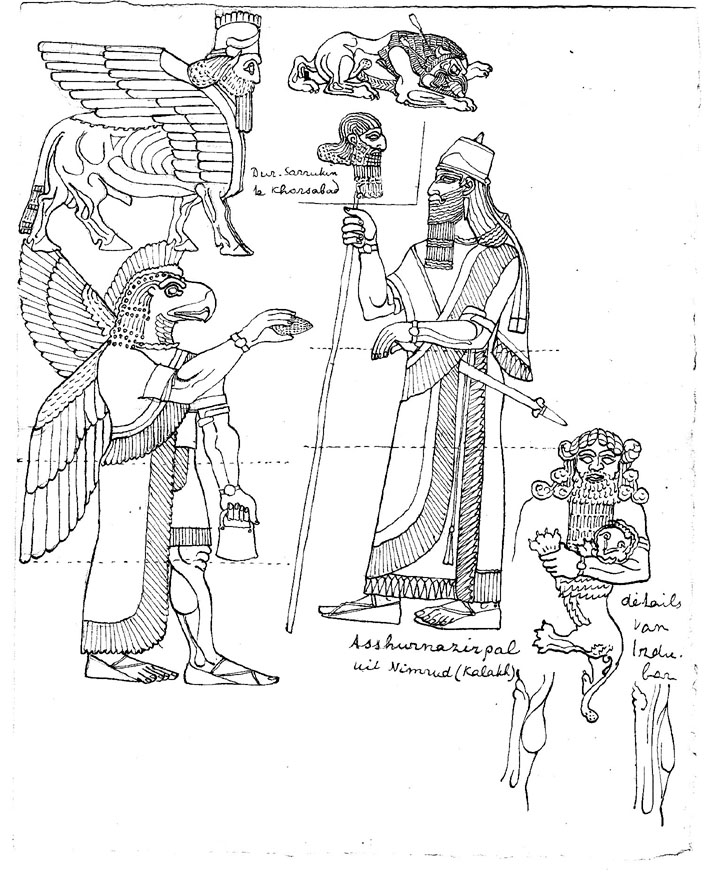 Dur-Sarrukin
te Khorsabad
Asshurnazirpal
uit Nimrud (Kalakh)
détails
van
Izdu-
bar